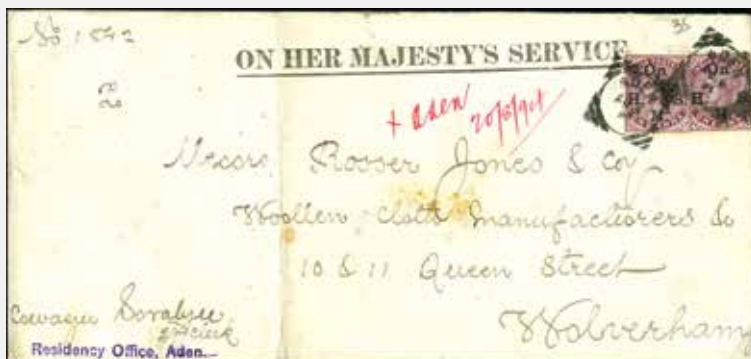 No 1542
ON HER MAJESTY'S SERVICE
+ Aden 20/8/94
Messrs. Rosser Jones & Coy
Woollen Cloth Manufacturers &c
10 & 11 Queen Street
Wolverham
Sorabjee
Clerk
Residency Office, Aden.
On H. M.
On H. M.